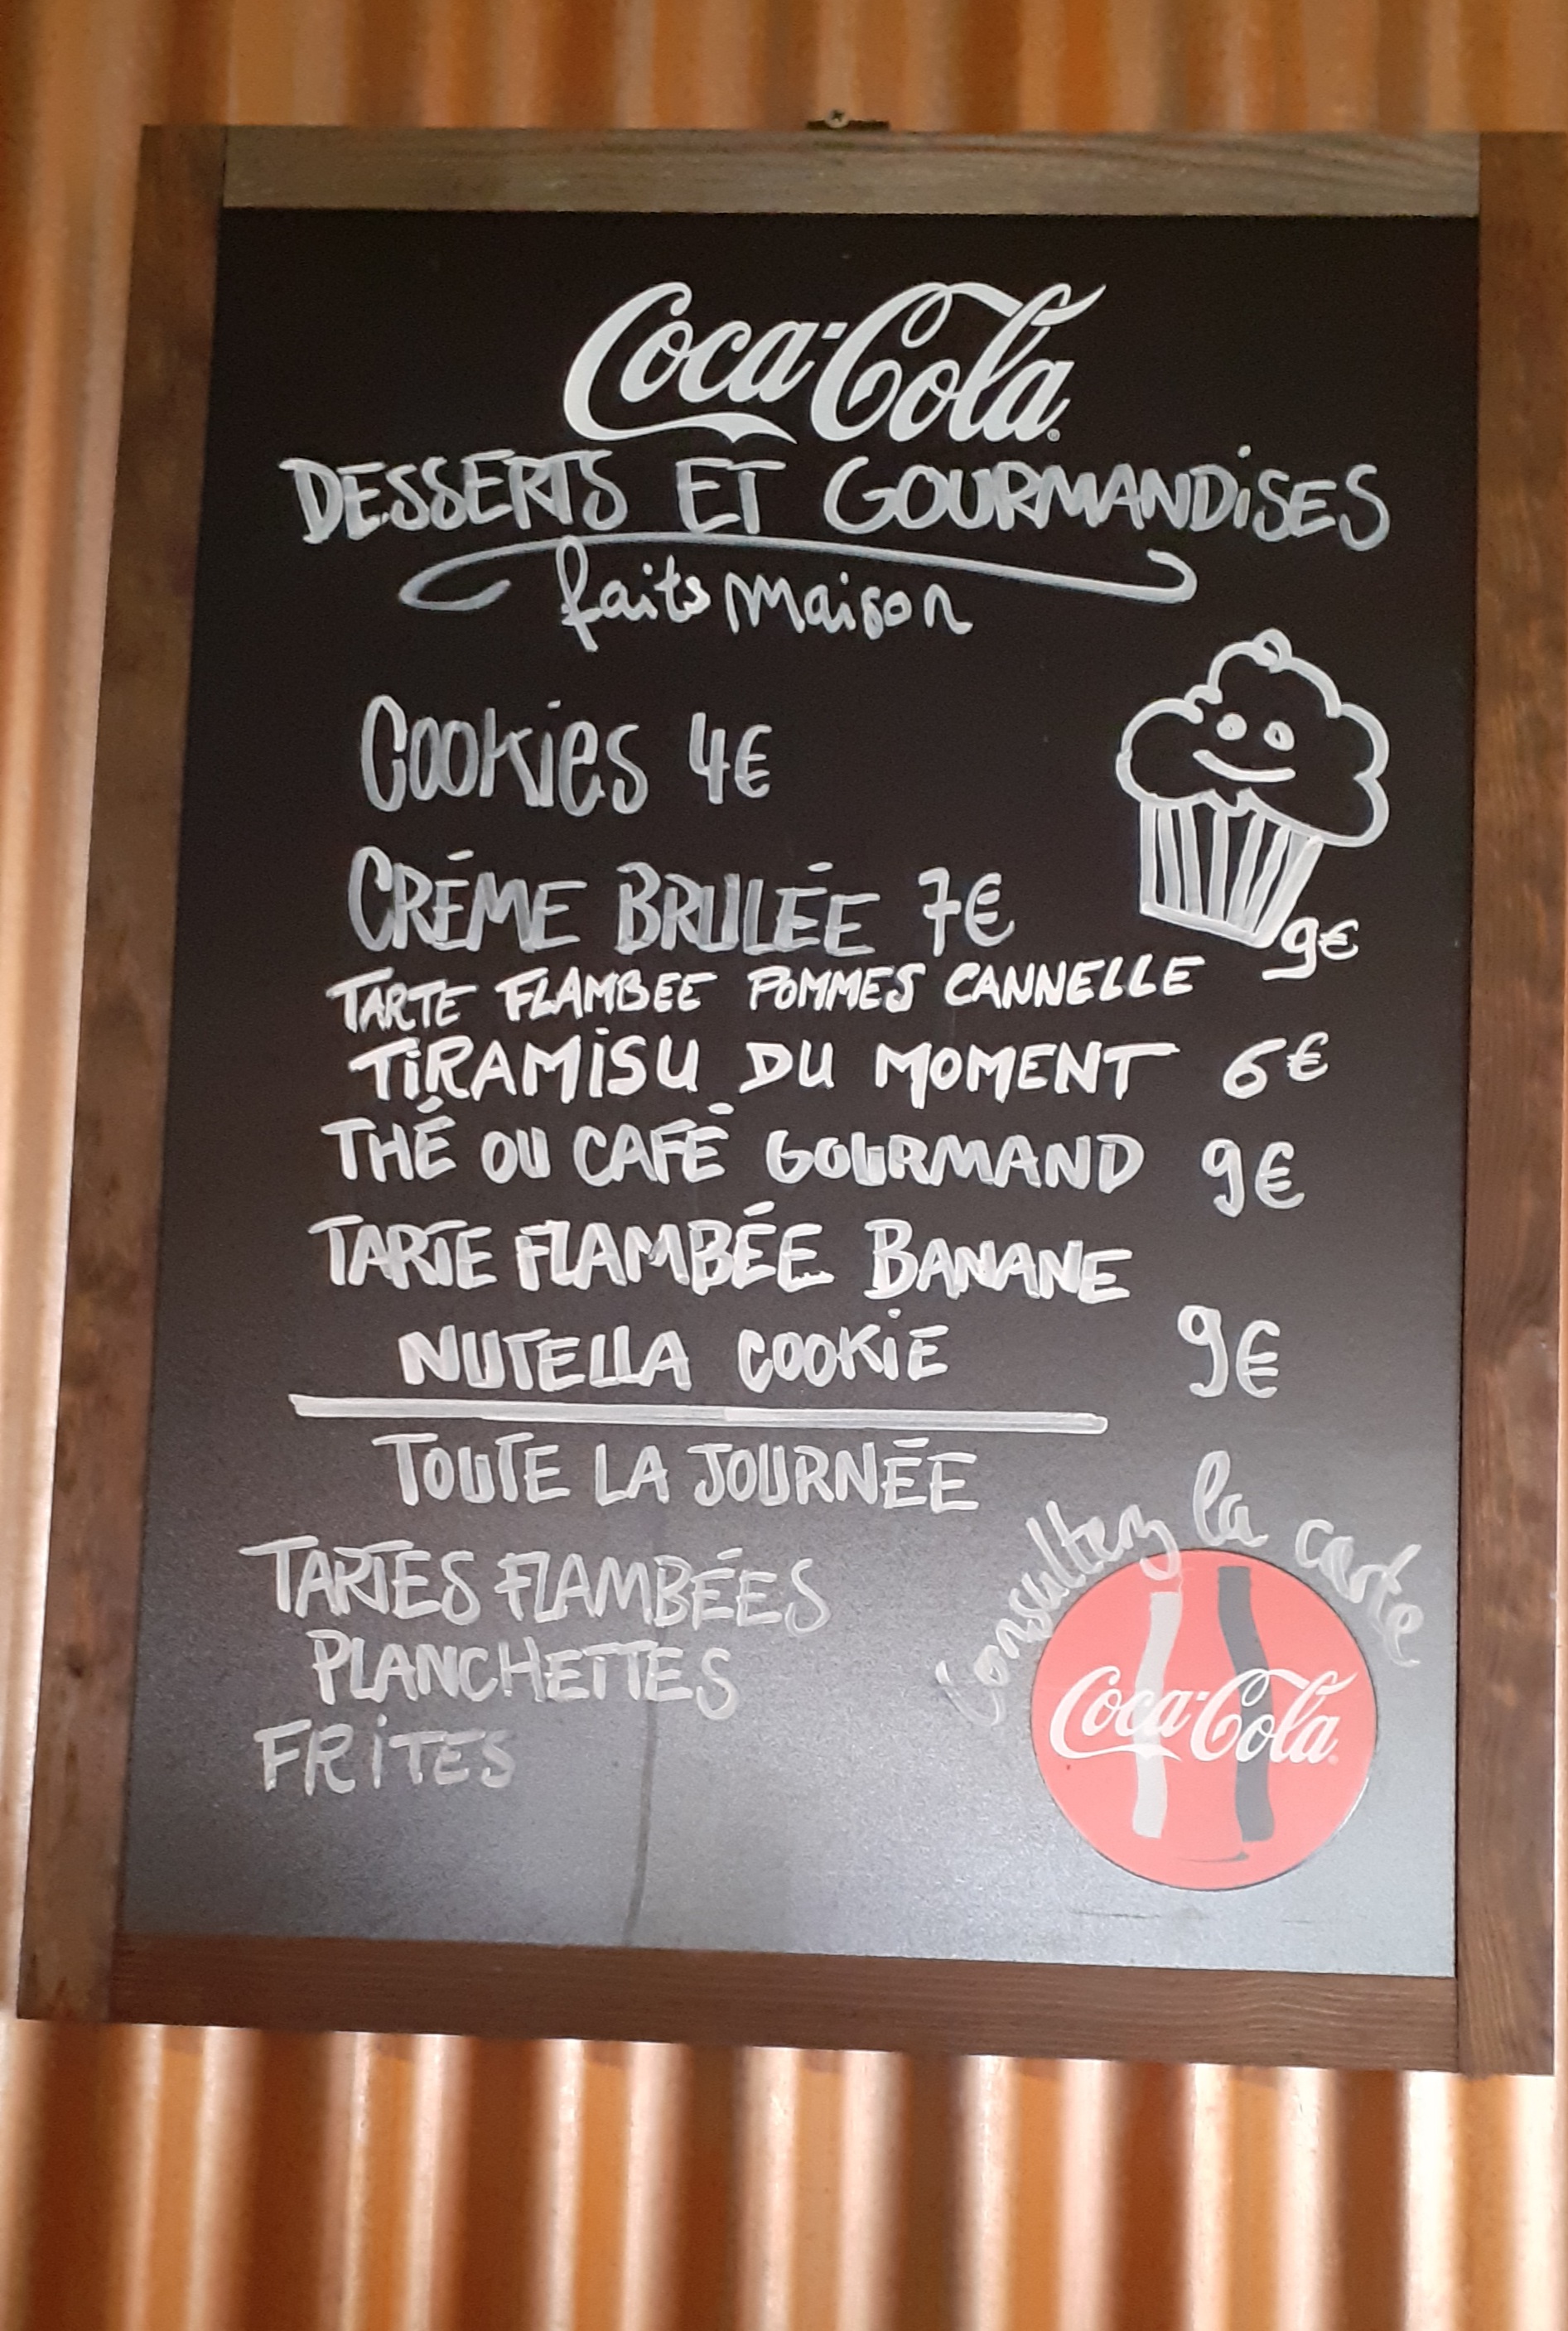 Coca-Cola
DESSERTS ET GOURMANDiSES
faits maison
Cookies 4€
CRÉME BRULÉE 7€
TARTE FLAMBEE POMMES CANNELLE 9€
TiRAMiSU DU MOMENT 6€
THÉ OU CAFÉ GOURMAND 9€
TARTE FLAMBÉE BANANE
NUTELLA COOKiE 9€
TOUTE LA JOURNÉE
Consultez la carte
TARTES FLAMBÉES
PLANCHETTES
FRiTES
Coca-Cola